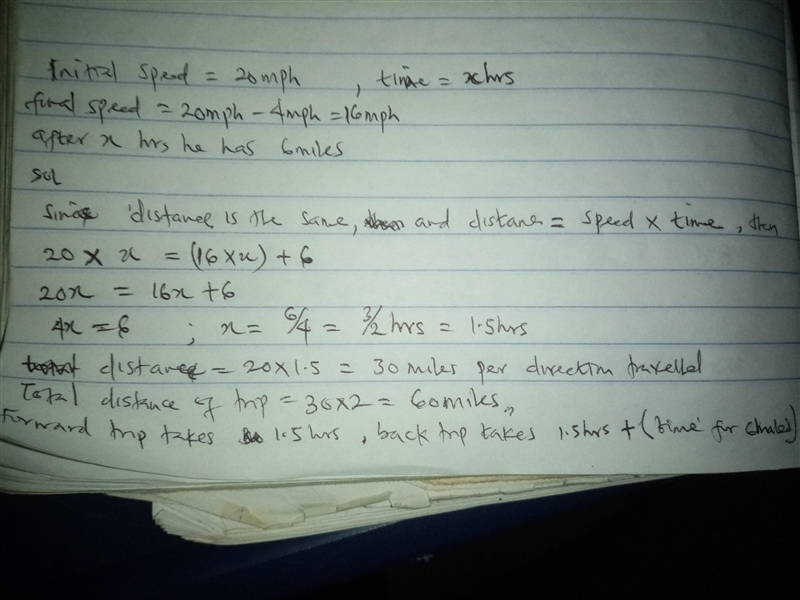 Initial speed = 20mph , time = x hrs
final speed = 20mph - 4mph = 16mph
after x hrs he has 6miles
Sol
Since distance is the same, and distance = speed × time, then
20 × x = (16 × x) + 6
20x = 16x + 6
4x = 6 ; x = 6/4 = 3/2 hrs = 1.5hrs
distance = 20 × 1.5 = 30 miles per direction travelled
Total distance of trip = 30 × 2 = 60miles,,
Forward trip takes 1.5hrs, back trip takes 1.5hrs + (time for 6miles)